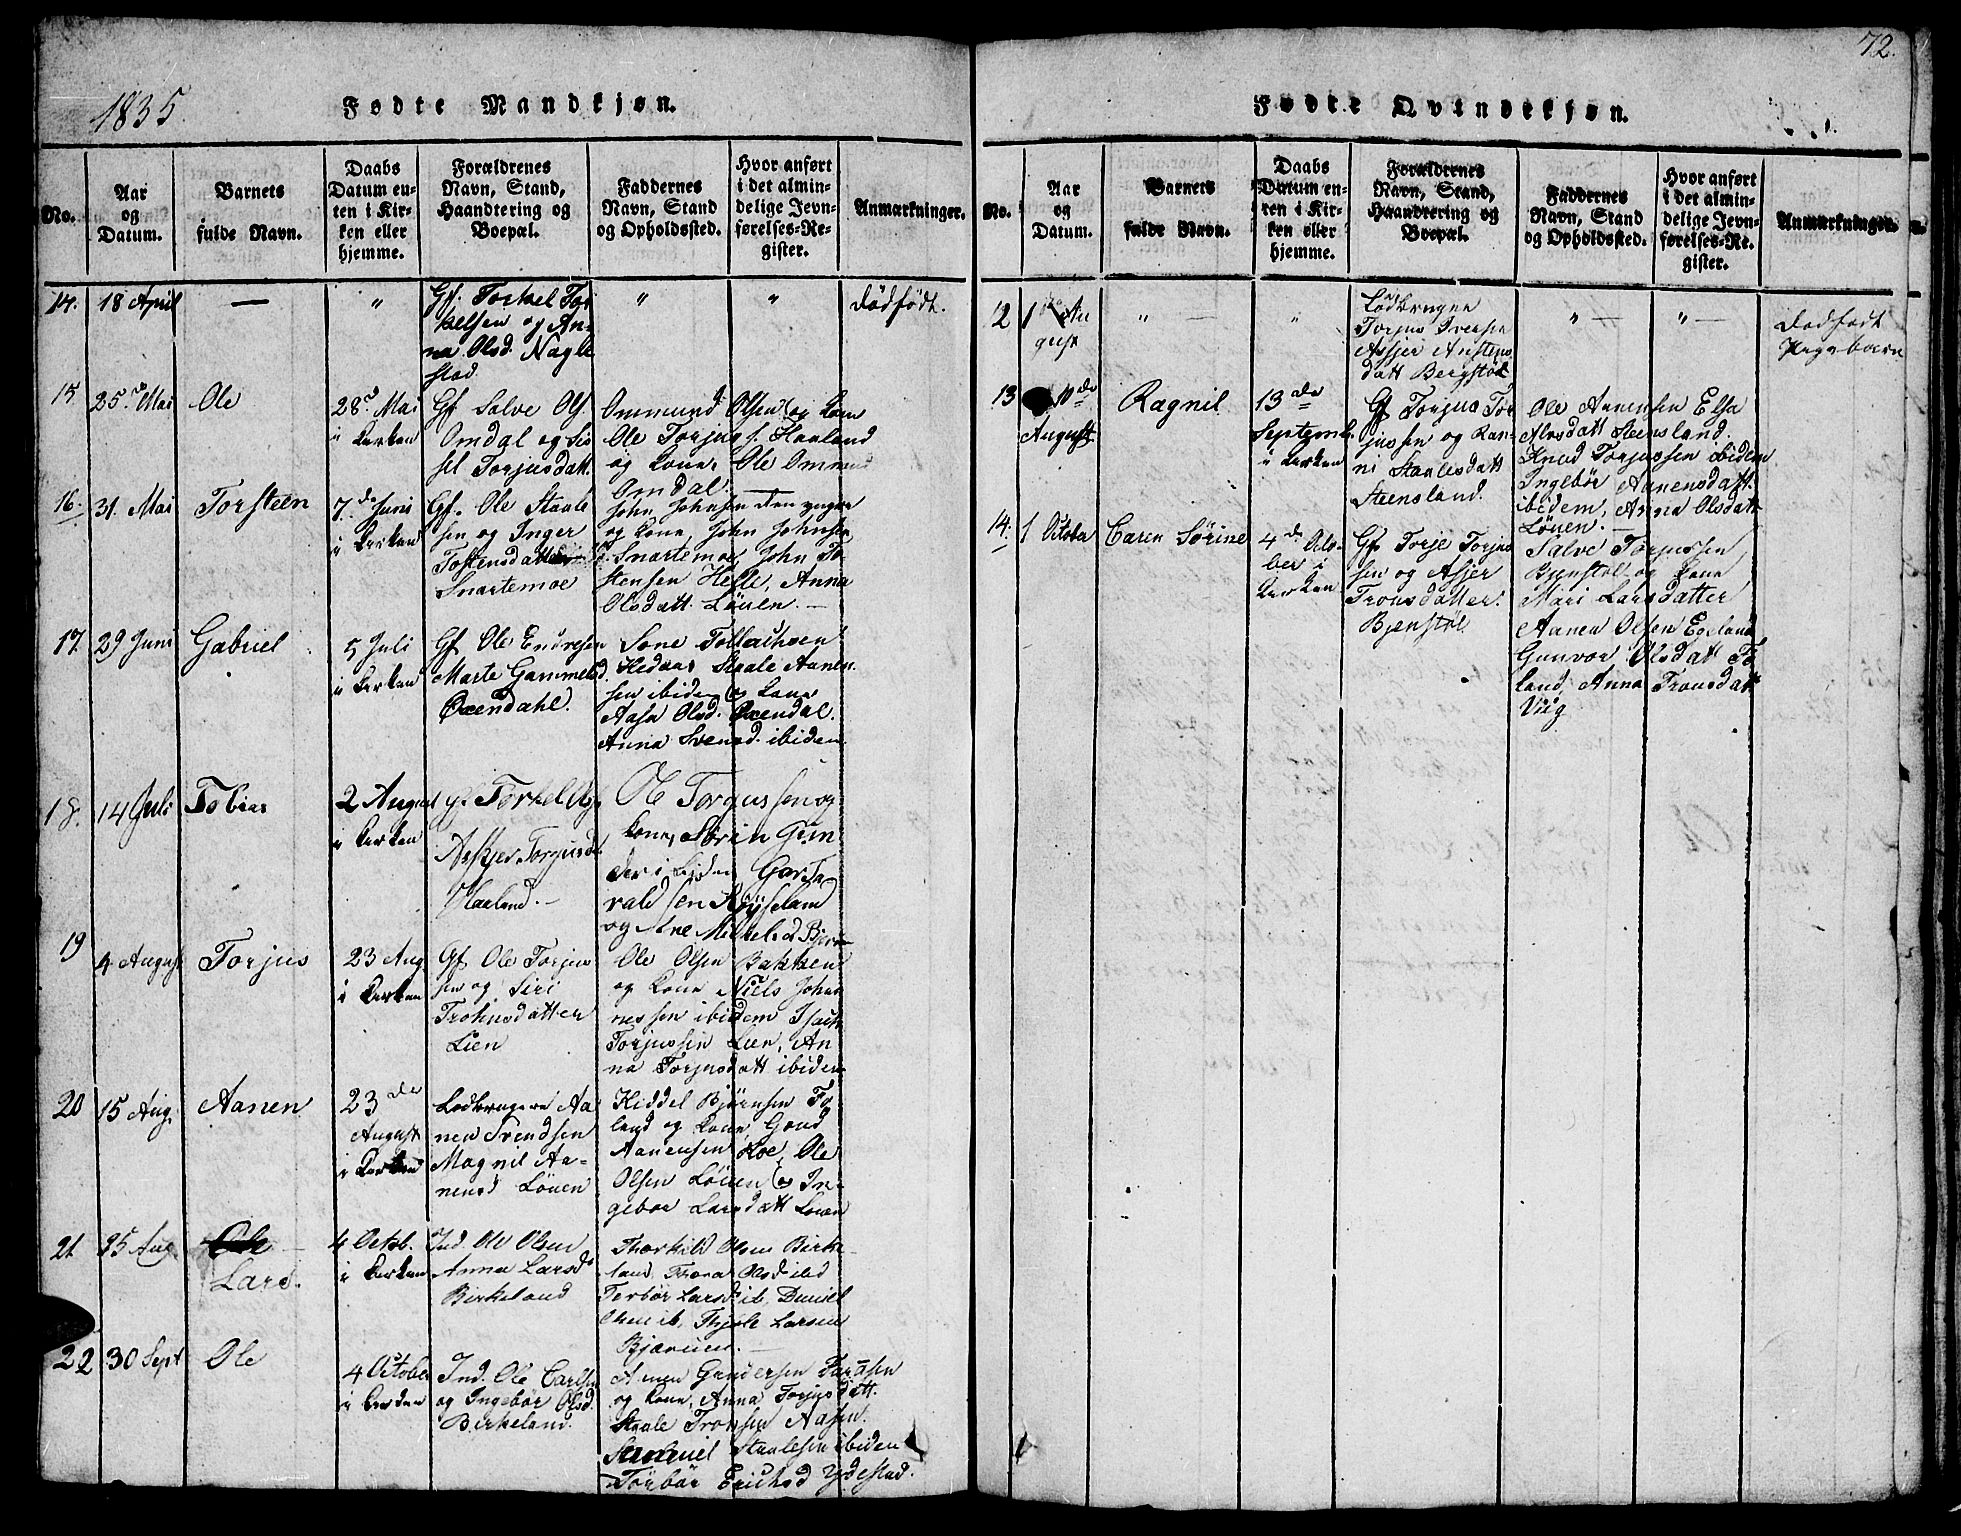 1835.
Fødte Mandkjøn.
No.
Aar
og
Datum.
Barnets
fulde Navn.
Daabs
Datum en-
ten i Kir-
ken eller
hjemme.
Forældrenes
Navn, Stand,
Haandtering og
Boepæl.
Faddernes
Navn, Stand
og Opholdssted.
Hvor anført
i det almin-
delige Jevn-
førelses-Re-
gister.
Anmærkninger.
14. 18 April — "
Gf. Torkel Tor
kelsen og An-
na Olsd. Nagle
stad
" " Dødfødt.
15 25. Mai Ole
28d Mai
i Kirken
Gf Salve Ols
Omdal og Sis
sel Torjusdatt.
Ommund Olsen og Kone
Ole Torjus s. Haaland
og Kone, Ole Ommund
Omdal.
16. 31. Mai Torsteen
7. de Juni
i Kirken
Gf. Ole Staale
sen og Inger
Tostensdatter
Snartemoe
John Johnsen den yngre
og Kone John Johnsen
Snartemoe, John To
stensen Helle, Anna
Olsdatt. Löuen. —
17. 29 Juni Gabriel
5 Juli
i Kirken
Gf Ole Endresen
Marte Gammelsd.
Øxendahl.
Sone Tollachsen
Hedaas Staale Aanen
sen ibidem og Kone
Aasa Olsd. Øxendal.
Anna Svensd. ibidem
18. 14 Juli Tobias
2 August
i Kirken
Gf Torkel
Askjer Torjusd.
Haaland. —
Ole Torgussen og
Kone, Sörin Gun
der i Lien Garu Ta
rald sen Röyseland
og Ane Mikkelsd Bjerue
19 4 August Torjus
23 Aug.
i Kirken
Gf Ole Torjus
sen og Siri
Trohnsdatter
Lien
Ole Olsen Bakken
og Kone, Niels Johan
nessen ibidem Isach
Torjussen Lien, An
na Torjusdatt ibidem
20 15 Aug. Aanen
23 de
August
i Kirken
Lodbrugere Aa
nen Svendsen
Magnil Aa-
nensd Löuen
Kiddel Björnsen Fo
land og Kone, Gond
Aanensen Hoe, Ole
Olsen Löuen og In-
gebor Larsdatt Louen
21 25 Aug
Ole
Lars.
4 Octob.
i Kirken
Ind. Ole Olsen
Anna Larsd.
Birkeland
Thorkild Olsen Birke
land, Thora Olsd ibid
Torbör Larsd ib, Daniel
Olsen ib, Thjøle Larsen
Bjaruen. —
22 30 Sept Ole
4 October
i Kirken
Ind. Ole Carlsen
og Ingebör Olsd.
Birkeland.
Aanen Gundersen
og Kone, Anna Torjusdatt.
Staale Tronsen Aasen.
Samuel Staalesen ibidem
Torbör Erichsd Ydestad.
72.
Fødte Qvindekjøn.
No.
Aar
og
Datum.
Barnets
fulde Navn.
Daabs
Datum en-
ten i Kir-
ken eller
hjemme.
Forældrenes
Navn, Stand,
Haandtering og
Boepæl.
Faddernes
Navn, Stand
og Opholdssted.
Hvor anført
i det almin-
delige Jevn-
førelses-Re-
gister.
Anmærkninger.
12 1 Au
gust
" — "
Lodbruger
Torjus Iversen
Assjer Anstens
datt Bergstöl
" — " —
Dødfødt
Pigebarn
13 10de
August
Ragnil
13 de
Septemb.
i Kirken
Gf Torjus Tor
jussen og Ran-
ni Staalesdatt
Steensland.
Ole Aanensen Elsa
Alvsdatt Steensland.
Knud Torjussen ibidem
Ingebör Aanensdatt.
ibidem, Anna Olsdatt
Löuen. —
14. 1 October Caren Sörine
4 de Octo-
ber i
Kirken
Gf Torje Torjus
sen og Assjer
Tronsdatter.
Bjenstöl
Salve Torjussen
Bjenstöl og Kone
Mari Larsdatter
Aanen Olsen Egeland
Gunvor Olsdatt Fo
land, Anna Tronsdatt
Viig